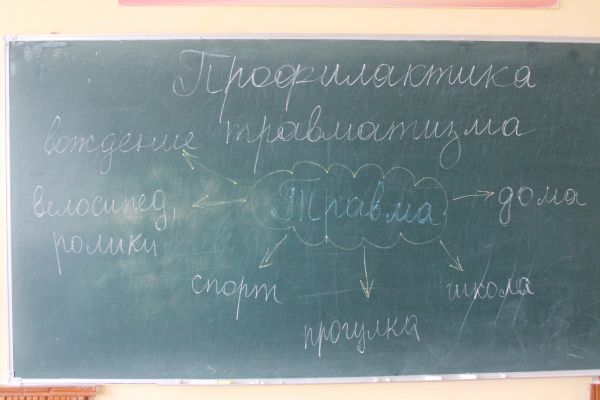 Профилактика
травматизма
вождение
велосипед,
ролики
Травма
дома
спорт
прогулка
школа